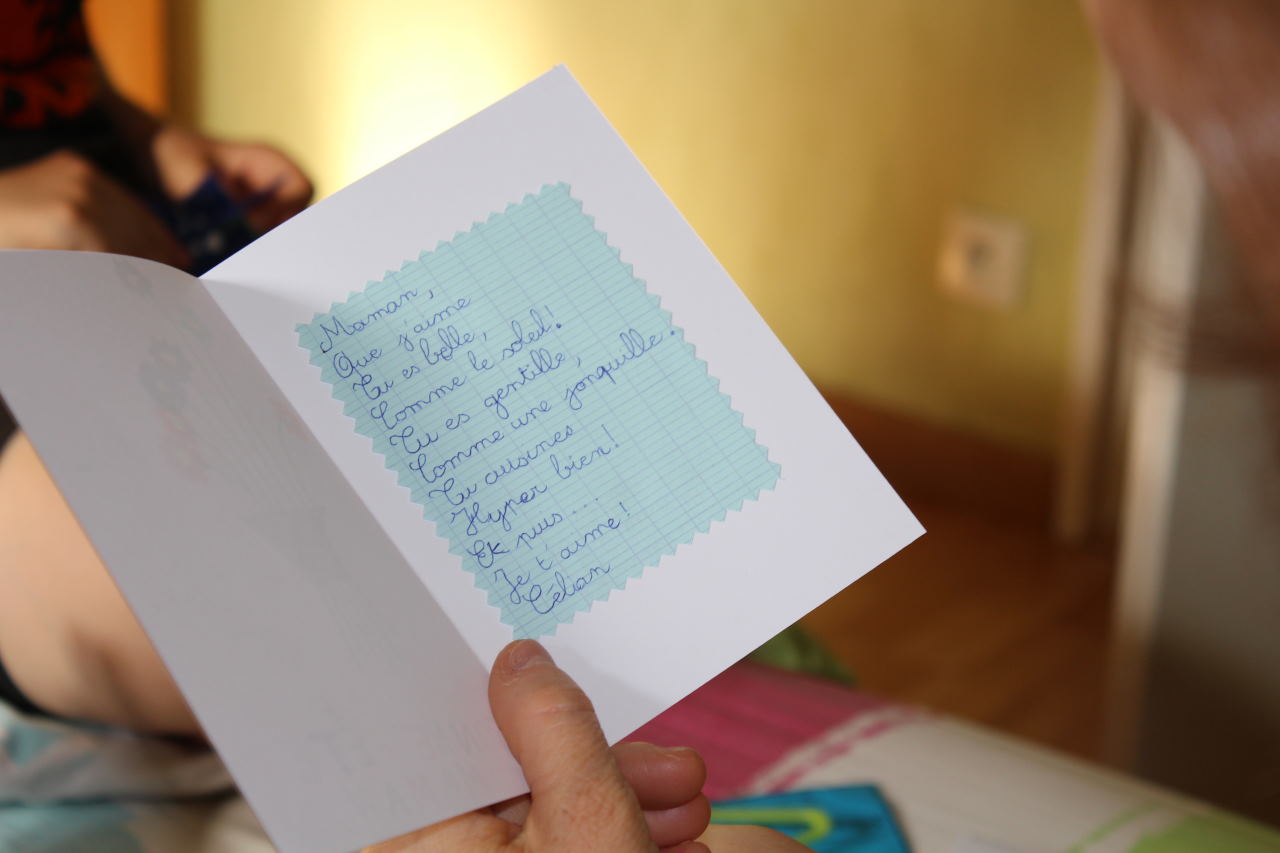 Maman,
Que j'aime
Tu es belle,
Comme le soleil!
Tu es gentille,
Comme une jonquille.
Tu cuisines
Hyper bien!
Et puis...
Je t'aime!
Célian